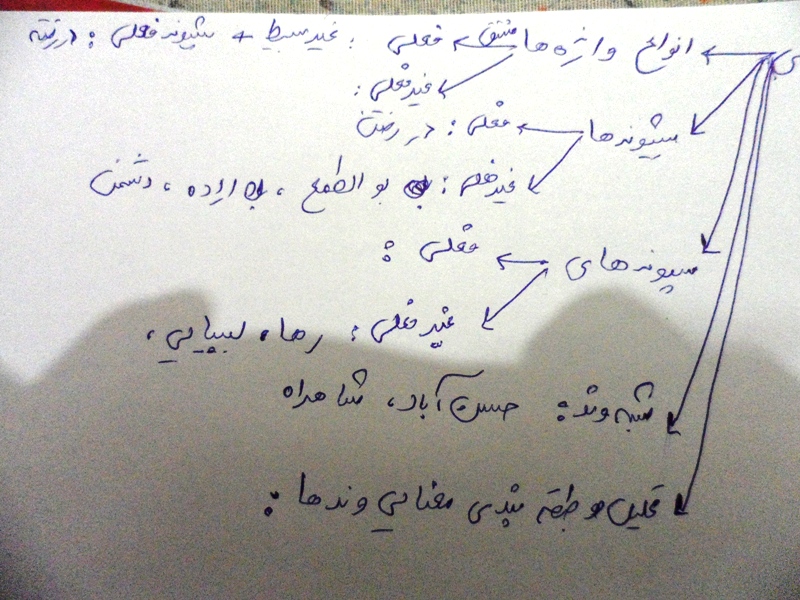 انواع واژه ها مشتق فعلی : غیر بسیط + پیشوند فعلی :
غیر فعلی :
پیشوندها فعلی : در رفتن
غیر فعلی : بو الطمع ، اراده ، دشمن
پسوندهای فعلی :
غیر فعلی : رها ،
شبه وند : حسن آباد ، شاهراه
تحلیل و طبقه بندی معنایی وندها :